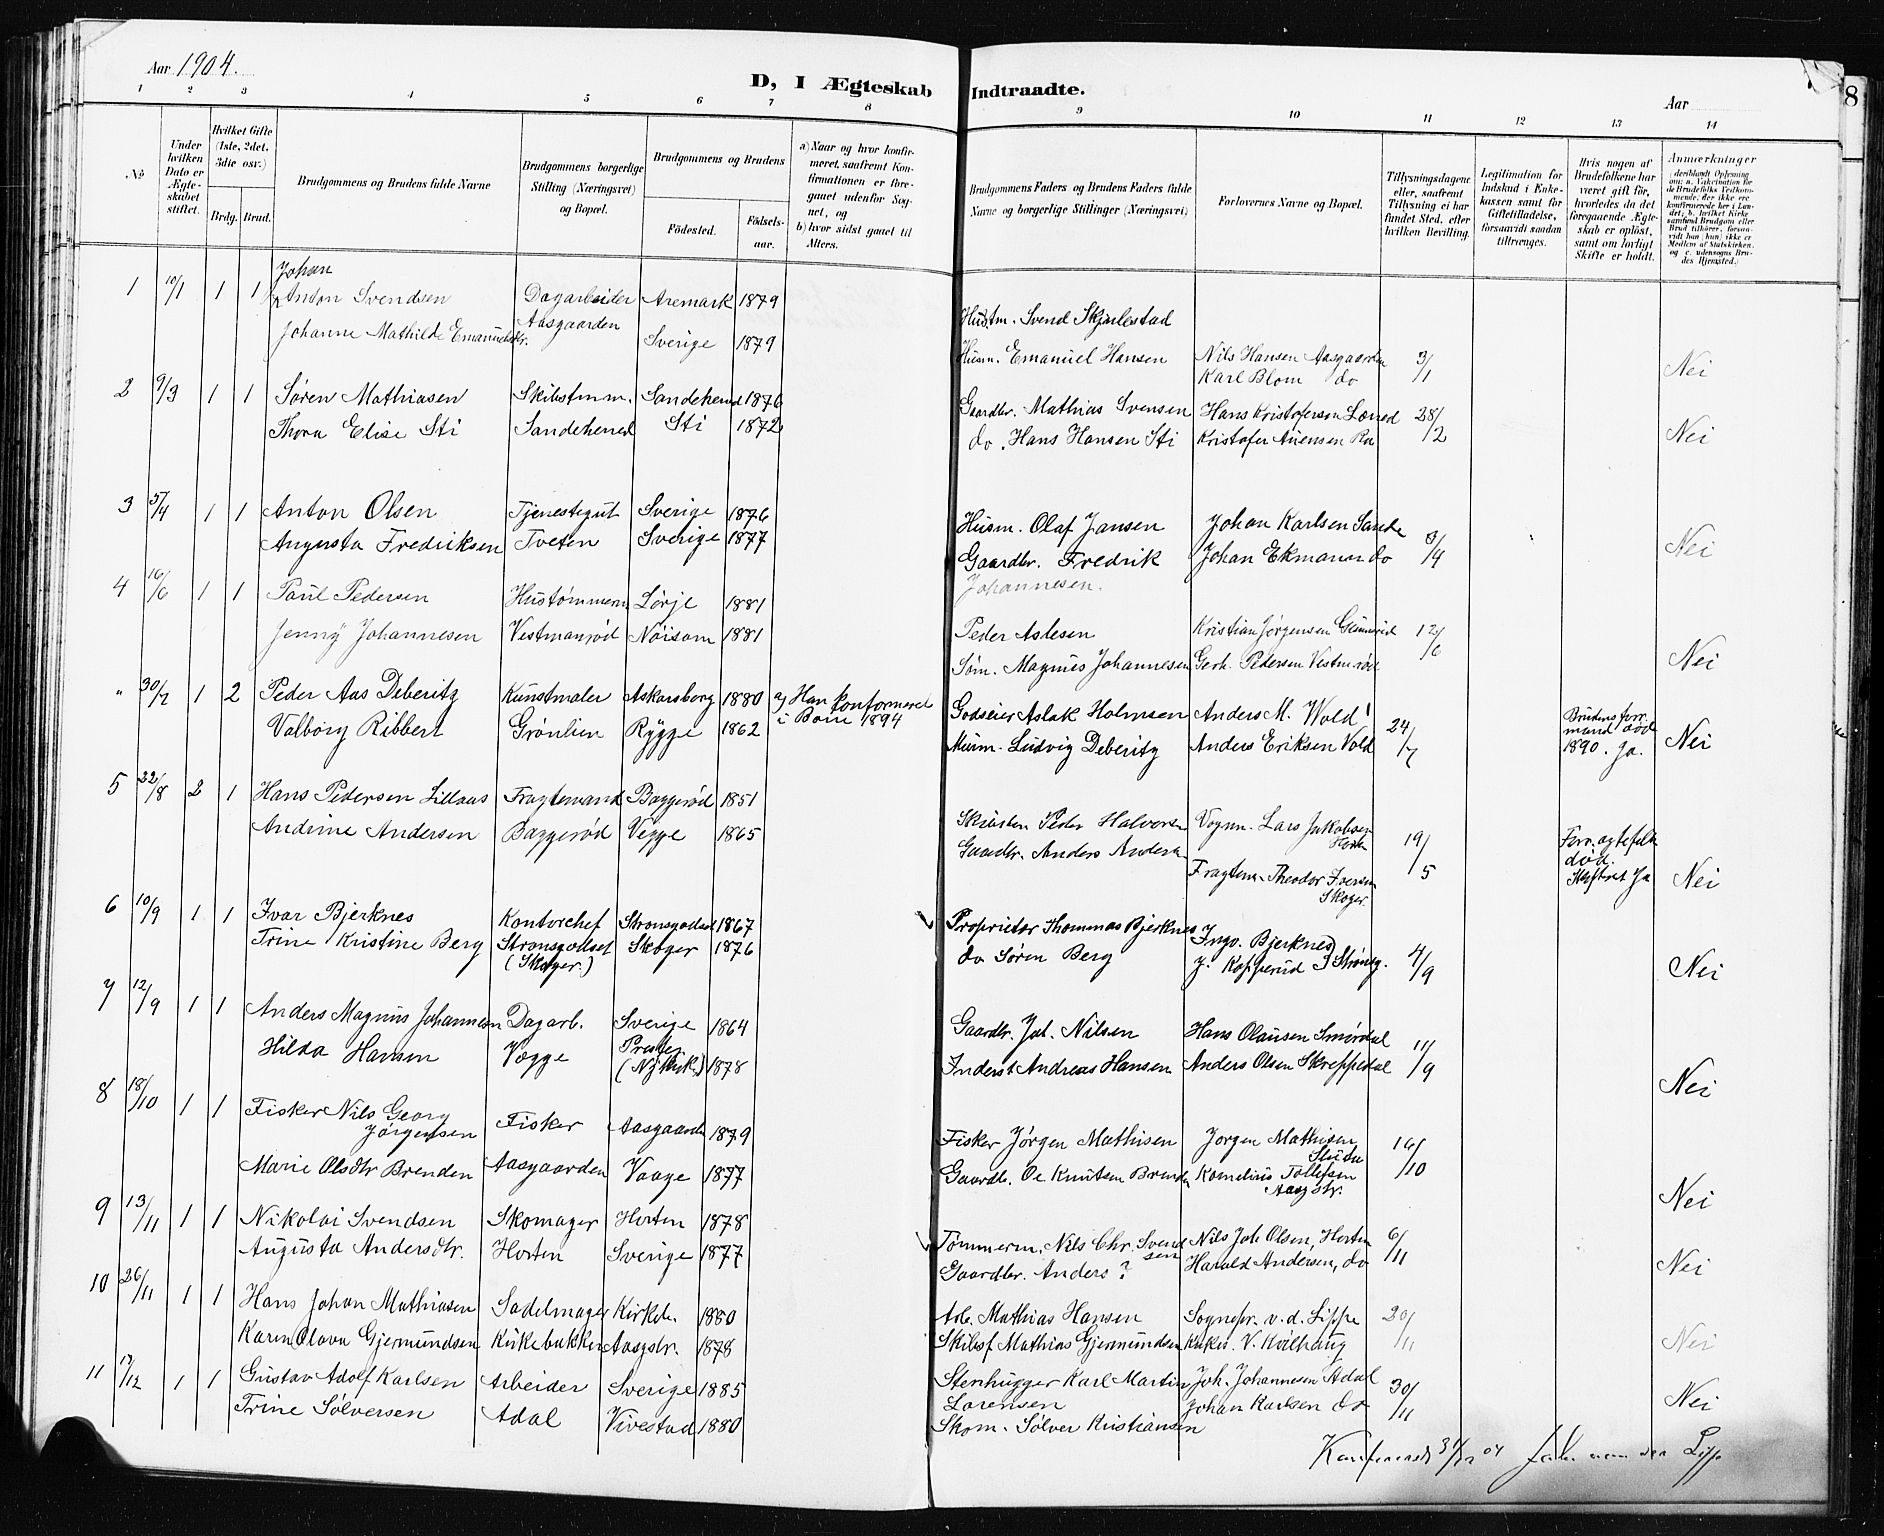 Aar 1904.
D, I Ægteskab Indtraadte.
Aar
8
1 2 3 4 5 6 7 8 9 10 11 12 13 14
No
Under hvilken Dato er Ægteskabet stiftet.
Hvilket Gifte (1ste, 2det, 3die osv.)
Brdg. Brud.
Brudgommens og Brudens fulde Navne
Brudgommens borgerlige Stilling (Næringsvei) og Bopæl.
Brudgommens og Brudens
Födested.
Födselsaar.
a) Naar og hvor konfirmeret, saafremt Konfirmationen er foregaaet udenfor Sognet, og
b) hvor sidst gaaet til Alters.
Brudgommens Faders og Brudens Faders fulde Navne og borgerlige Stillinger (Næringsvei)
Forlovernes Navne og Bopæl.
Tillysningsdagene eller, saafremt Tillysning ei har fundet Sted, efter hvilken Bevilling.
Legitimation for Indskud i Enkekassen samt for Giftetilladelse, forsaavidt saadan tiltrænges.
Hvis nogen af Brudefolkene har været gift før, hvorledes da det foregaaende Ægteskab er opløst, samt om lovligt Skifte er holdt.
Anmærkninger
1 10/1 1 1 Johan
Anton Svendsen Dagarbeider Aremark 1879 Husm. Svend Skjærlestad
Johanne Mathilde Emanuelsdtr. Aasgaarden Sverige 1879 Husm. Emanuel Hansen Nils Hansen Aasgaarden 3/1 Nei
Karl Blom do
2 9/3 1 1 Søren Mathiasen Skibstmm. Sandehered 1876 Gaardbr. Mathias Svensen Hans Kristofersen Lerred 28/2
Thora Elise Sti Sandehered Sti 1872 do. Hans Hansen Sti Kristofer Ra Nei
3 5/4 1 1 Anton Olsen Tjenestegut Sverige 1876 Husm. Olaf Jansen Johan Karlsen Sande
Augusta Fredriksen Tveten Sverige 1877 Gaardbr. Fredrik Johannesen. Johan Ekmanar do 3/4 Nei
4 16/6 1 1 Paul Pedersen Hustømmerm Lørje 1881 Peder Aslesen Kristian Jørgensen 12/6
Jenny Johannesen Vestmanrød Nöisom 1881 Søm. Magnus Johannesen Gerh. Pedersen Vestmrød Nei
" 30/7 1 2 Peder Aas Deberitz Kunstmaler Askarsborg 1880 a) Han konformeret i Borre 1894 Godseier Aslak Holmsen Anders M. Wold 24/7 Brudens forr. mand død 1890. Ja. Nei
Valborg Ribbert Grønlien Rygge 1862 Murm. Ludvig Deberitz Anders Eriksen Vold
5 22/8 2 1 Hans Pedersen Lillaas Fragtemand Baggerød 1851 Peder Halvorsen Vognm. Lars Jakobsen Horten 19/5 Forr. ægtefelle død. Skiftet Ja Nei
Andrine Andersen Baggerød Vegge 1865 Gaardbr. Anders Andersen Fragtem. Theodor Iversen Skoger.
6 10/9 1 1 Ivar Bjerknes Kontorchef Strømsgodset 1867 Proprietær Thommas Bjerknes Ingv. Bjerknes
Trine Kristine Berg Strømsgodset (Skoger.) Skoger 1876 do Søren Berg J. Kopperud } Strømsg. 4/9 Nei
7 12/9 1 1 Anders Magnus Johannesen Dagarb. Sverige 1864 Gaardbr. Joh. Nilsen Hans Olausen Smørdal 11/9
Hilda Hansen Vegge Prester (Nykirk.) 1878 Inderst Andreas Hansen Anders Olsen Skreppedal Nei
8 18/10 1 1 Fisker Nils Georg Jørgensen Fisker Aasgaarden 1879 Fisker Jørgen Mathisen Jørgen Mathisen 16/10
Marie Olsdtr Brenden Aasgaarden Vaage 1877 Gaardb. Ole Knutsen Brenden Kornelius Tollefsen Aasgstr. Nei
9 13/11 1 1 Nikolai Svendsen Skomager Horten 1878 Tømmerm. Nils Chr. Svendsen Nils Joh Olsen, Horten 6/11
Augusta Andersdtr. Horten Sverige 1877 Gaardbr. Anders ? Harald Andersen, do Nei
10 26/11 1 1 Hans Johan Mathiasen Sadelmager Kirkeb. 1880 Arb. Mathias Hansen Sognepr. v. d. Lippe 20/11
Karen Olava Gjermundsen Kirkebakken Aasgstr. 1878 Skibsf Mathias Gjermundsen Kirkes. V. Kvilhaug Nei
11 17/12 1 1 Gustav Adolf Karlsen Arbeider Sverige 1885 Stenhugger Karl Martin Lorensen Joh. Johannesen Adal 30/11
Trine Sølversen Adal Vivestad 1880 Skom. Sølver Kristiansen Johan Karlsen do Nei
Konfereret 31/12 04 Jak. von der Lippe